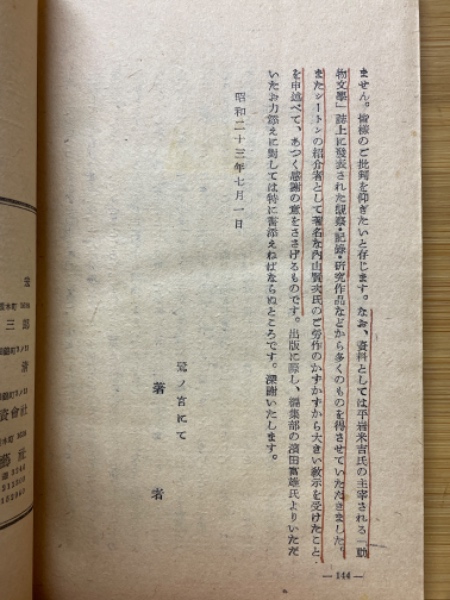 ません。皆様のご批判を仰ぎたいと存じます。なお、資料としては平岩米吉氏の主宰される「動
物文學」誌上に發表された觀察・記録・研究作品などから多くのものを得させていただきました。
またシートンの紹介者として著名な內山賢次氏のご勞作のかずかずから大きい敎示を受けたこと
を申述べて、あつく感謝の意をささげるものです。出版に際し、編集部の濱田富雄氏よりいただ
いたお力添えに對しては特に書添えねばならぬところです。深謝いたします。
昭和二十三年七月一日
鷺ノ宮にて
著者
— 144 —
三郎
會社